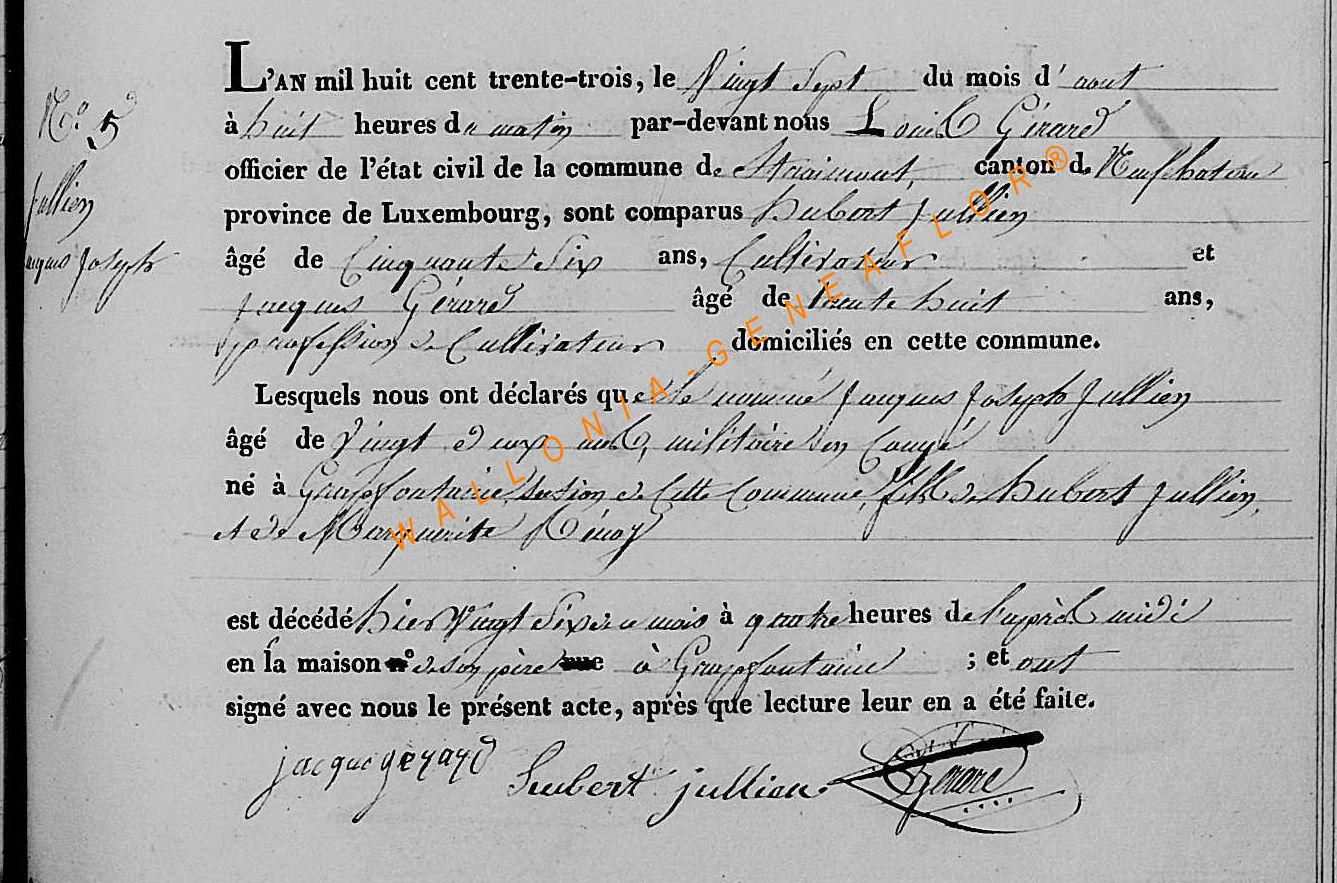 N.o 5
Jullien
Jacques Joseph
L'AN mil huit cent trente-trois, le Vingt Sept du mois d' aout
à huit heures du matin par-devant nous Louis Gérard
officier de l'état civil de la commune de Straimont, canton de Neufchateau
province de Luxembourg, sont comparus hubert Jullien
âgé de Cinquante Six ans, Cultivateur et
Jacques Gérard âgé de trente huit ans,
profession de Cultivateur domiciliés en cette commune.
Lesquels nous ont déclarés que le nommé Jacques Joseph Jullien
âgé de Vingt deux ans, militaire en Congé
né à Grapfontaine, Section de Cette Commune, fils de hubert Jullien,
et de Marguerite
est décédé hier Vingt Six de ce mois à quatre heures de l'après midi
en la maison de son père à Grapfontaine ; et ont
signé avec nous le présent acte, après que lecture leur en a été faite.
jacque gerard hubert jullien Gerard
WALLONIA-GENEAFLOR®